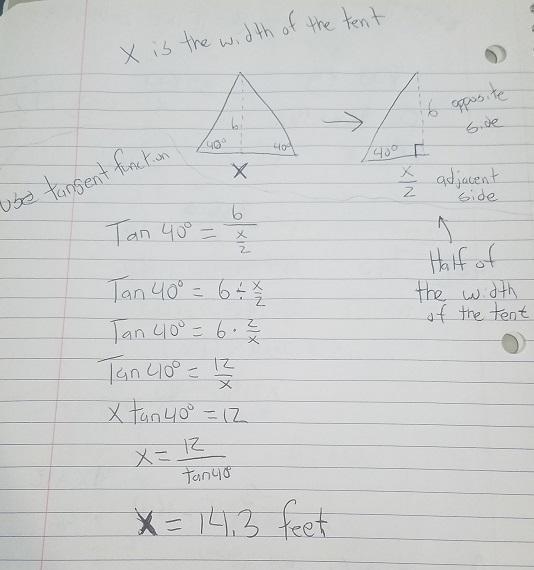 X is the width of the tent
6
40°
40°
X
6 opposite
side
40°
x/2 adjacent
side
Half of
the width
of the tent
use tangent function
Tan 40° = 6/(x/2)
Tan 40° = 6 ÷ x/2
Tan 40° = 6 · 2/x
Tan 40° = 12/x
x tan 40° = 12
x = 12/tan 40
X = 14.3 feet